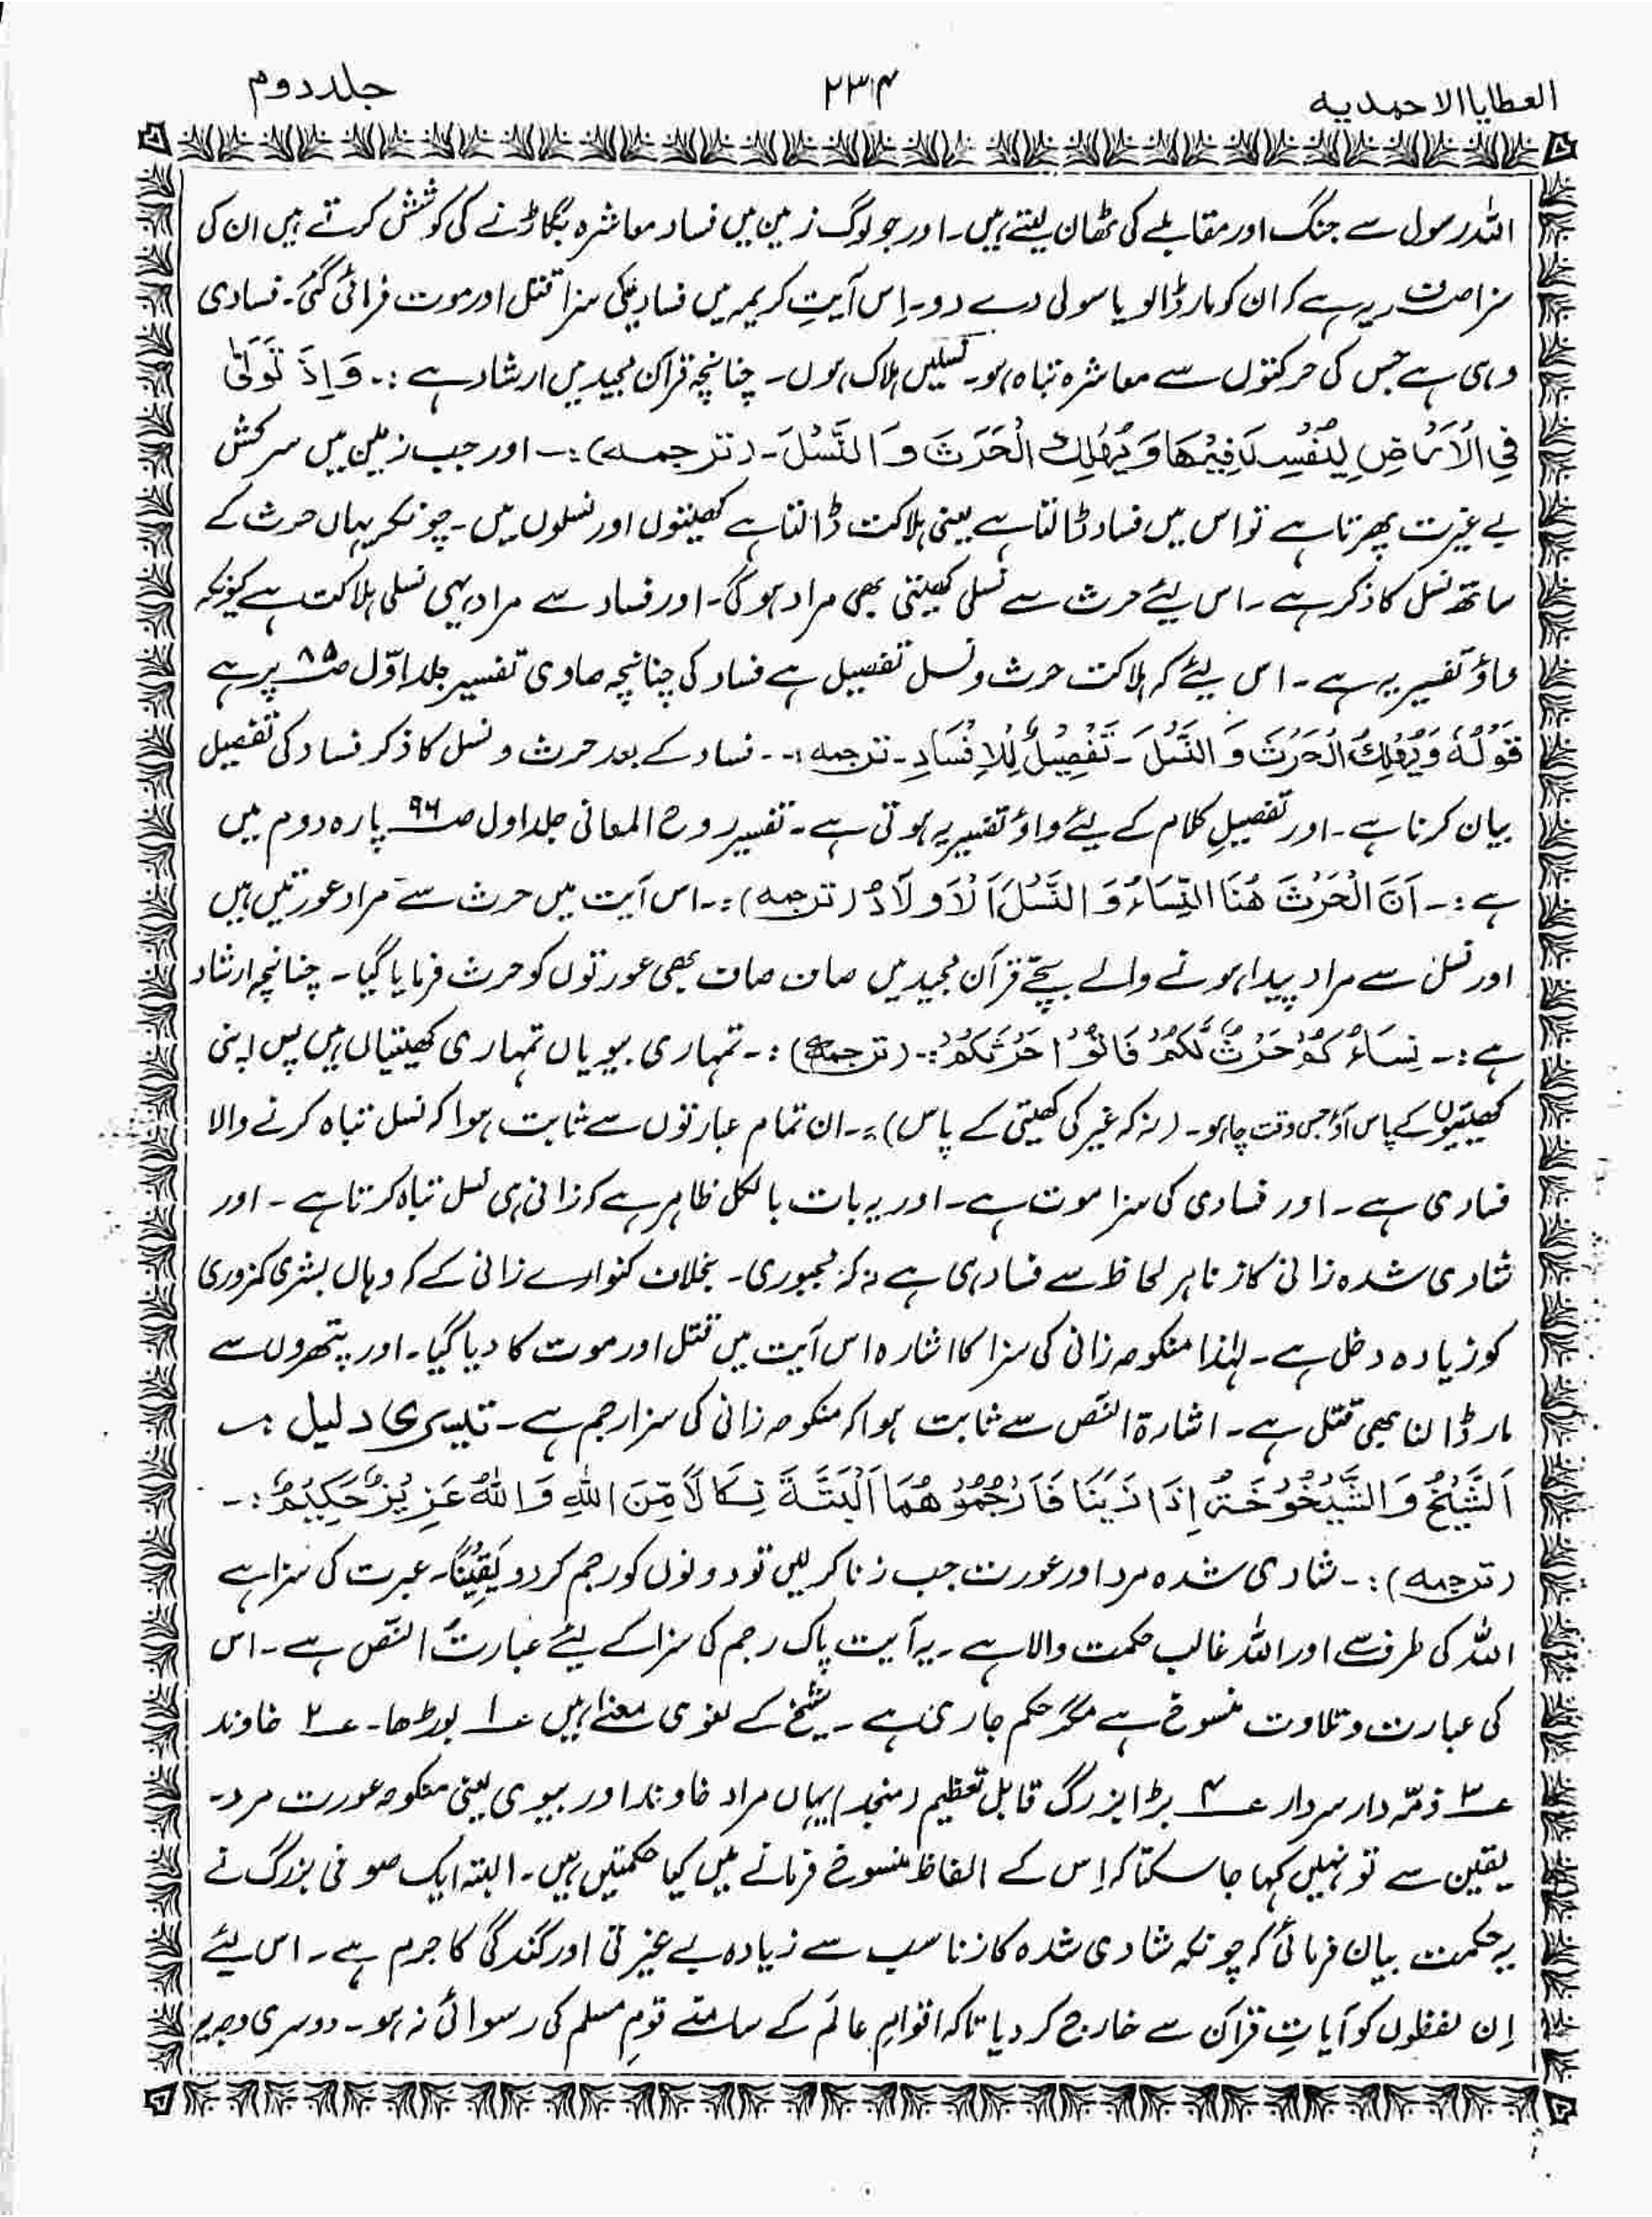 العطایا الاحمدیہ
۲۳۴
جلد دوم
اللہ رسول سے جنگ اور مقابلے کی ٹھان لیتے ہیں۔ اور جو لوگ زمین میں فساد معاشرہ بگاڑنے کی کوشش کرتے ہیں ان کی
سزا صرف یہ ہے کہ ان کو مار ڈالو یا سولی دے دو۔ اِس آیتِ کریمہ میں فسادیکی سزا قتل اور موت فرمائی گئی۔ فسادی
وہی ہے جس کی حرکتوں سے معاشرہ تباہ ہو۔ نسلیں ہلاک ہوں۔ چنانچہ قرآن مجید میں ارشاد ہے :۔ وَ اِذَ تَوَلّٰی
فِی الْاَرْضِ لِیُفْسِدَ فِیْهَا وَ یُهْلِكَ الْحَرَثَ وَ النَّسْلَ۔ (ترجمہ) :۔ اور جب زمین میں سرکش
بے غیرت پھرتا ہے تو اس میں فساد ڈالتا ہے یعنی ہلاکت ڈالتا ہے کھیتوں اور نسلوں میں۔ چونکہ یہاں حرث کے
ساتھ نسل کا ذکر ہے۔ اس لیئے حرث سے نسلی کھیتی بھی مراد ہو گی۔ اور فساد سے مراد یہی نسلی ہلاکت ہے کیونکہ
واؤ تفسیریہ ہے۔ اس لیئے کہ ہلاکت حرث و نسل تفصیل ہے فساد کی چنانچہ صاوی تفسیر جلد اوّل صـ ۸۵ پر ہے
قَوْلُهٗ وَ یُهْلِكَ الْحَرْثَ وَ النَّسْلَ۔ تَفْصِیْلٌ لِلْاِفْسَادِ۔ ترجمہ :۔ فساد کے بعد حرث و نسل کا ذکر فساد کی تفصیل
بیان کرنا ہے۔ اور تفصیلِ کلام کے لیئے واؤ تفسیریہ ہوتی ہے۔ تفسیر روح المعانی جلد اول صـ ۹۶ پارہ دوم میں
ہے :۔ اَنَّ الْحَرْثَ هُنَا النِّسَاءُ وَ النَّسْلَ اَلْاَوْلَادُ (ترجمہ) :۔ اس آیت میں حرث سے مراد عورتیں ہیں
اور نسل سے مراد پیدا ہونے والے بچے قرآن مجید میں صاف صاف بھی عورتوں کو حرث فرمایا گیا۔ چنانچہ ارشاد
ہے :۔ نِسَاءُ کُمْ حَرْثٌ لَّکُمْ فَاتُوْا حَرْثَکُمْ :۔ (ترجمہ) :۔ تمہاری بیویاں تمہاری کھیتیاں ہیں پس اپنی
کھیتیوں کے پاس آؤ جس وقت چاہو۔ (نہ کہ غیر کی کھیتی کے پاس) :۔ ان تمام عبارتوں سے ثابت ہوا کہ نسل تباہ کرنے والا
فسادی ہے۔ اور فسادی کی سزا موت ہے۔ اور یہ بات بالکل ظاہر ہے کہ زانی ہی نسل تباہ کرتا ہے۔ اور
شادی شدہ زانی کا زنا ہر لحاظ سے فساد ہی ہے نہ کہ مجبوری۔ بخلاف کنوارے زانی کے کہ وہاں بشری کمزوری
کو زیادہ دخل ہے۔ لہٰذا منکوحہ زانی کی سزا کا اشارہ اس آیت میں قتل اور موت کا دیا گیا۔ اور پتھروں سے
مار ڈالنا بھی قتل ہے۔ اشارۃ النَّص سے ثابت ہوا کہ منکوحہ زانی کی سزا رجم ہے۔ تیسری دلیل :۔
اَلشَّیْخُ وَ الشَّیْخُوْخَةُ اِذَا زَنَیْنَا فَارْجُمُوْهُمَا اَلْبَتَّةَ نِکَالًا مِّنَ اللهِ وَ اللهُ عَزِیْزٌ حَکِیْمٌ :۔
(ترجمہ) :۔ شادی شدہ مرد اور عورت جب زنا کر لیں تو دونوں کو رجم کر دو یَقِیْنًا۔ عبرت کی سزا ہے
اللہ کی طرف سے اور اللہ غالب حکمت والا ہے۔ یہ آیت پاک رجم کی سزا کے لیئے عبارتُ النَّص ہے۔ اس
کی عبارت و تلاوت منسوخ ہے مگر حکم جاری ہے۔ شیخ کے لغوی معنے ہیں عـ۱ بوڑھا۔ عـ۲ خاوند
عـ۳ ذمّہ دار سردار عـ۴ بڑا بزرگ قابل تعظیم (منجد) یہاں مراد خاوند اور بیوی یعنی منکوحہ عورت مرد۔
یقین سے تو نہیں کہا جا سکتا کہ اِس کے الفاظ منسوخ فرمانے میں کیا حکمتیں ہیں۔ البتہ ایک صوفی بزرگ نے
یہ حکمت بیان فرمائی کہ چونکہ شادی شدہ کا زنا سب سے زیادہ بے غیرتی اور گندگی کا جرم ہے۔ اس لیئے
اِن لفظوں کو آیاتِ قرآن سے خارج کر دیا تاکہ اقوامِ عالَم کے سامنے قومِ مسلم کی رسوائی نہ ہو۔ دوسری وجہ یہ